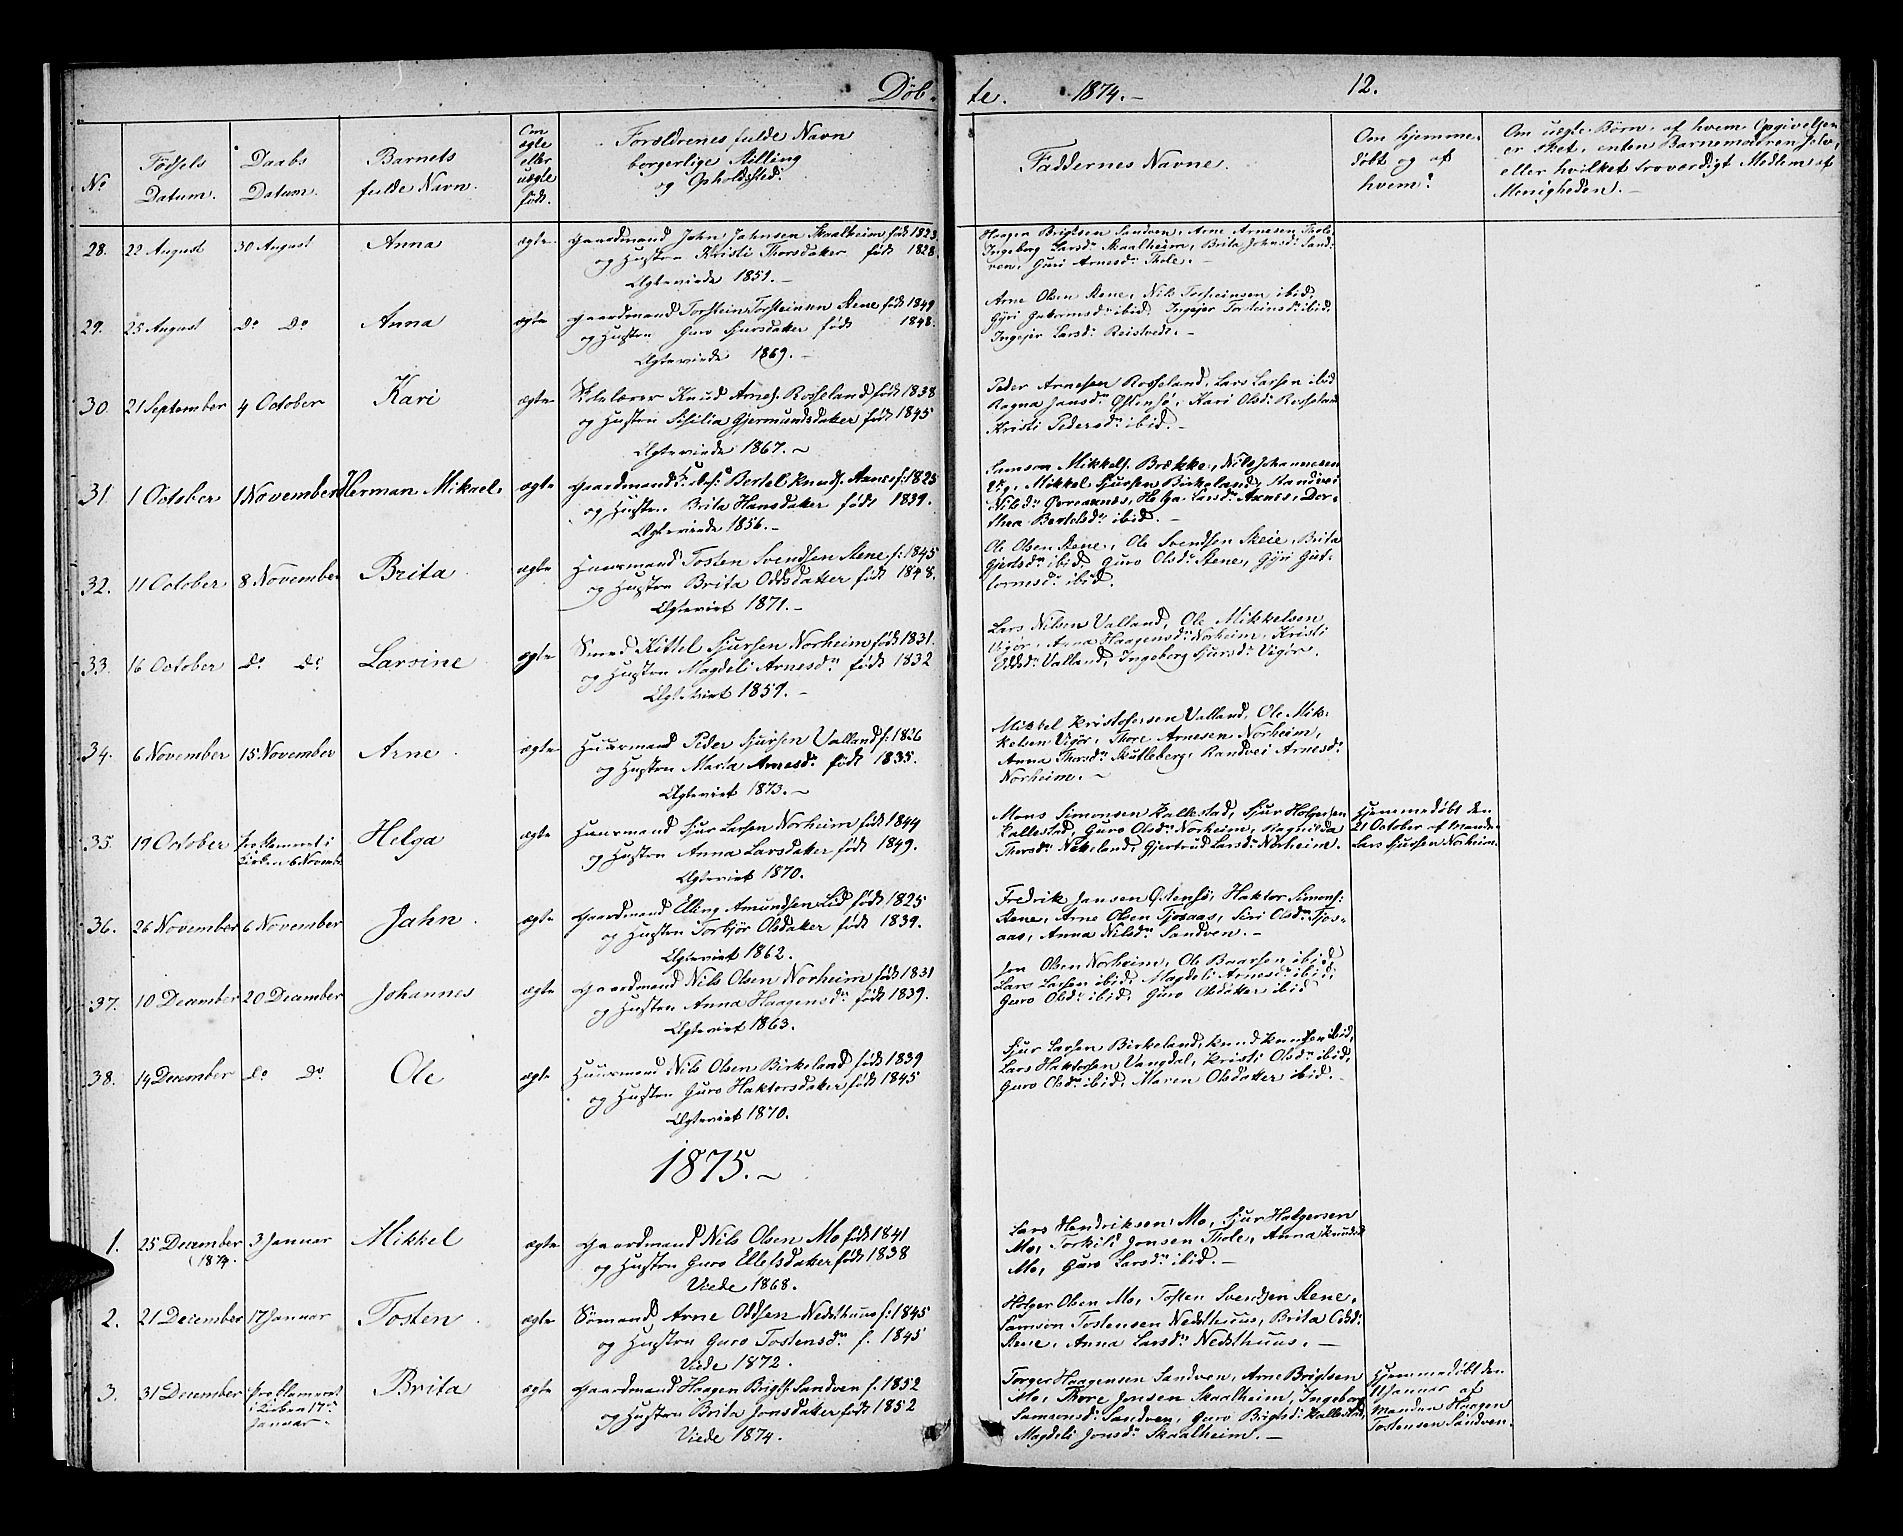 Døb-
te. 1874.- 12.
No
Fødsels Datum.
Daabs Datum.
Barnets fulde Navn.
Om ægte eller uægte født.
Forældrenes fulde Navn borgerlige Stilling og Opholdssted.
Faddernes Navne.
Om hjemme-
døbt og af
hvem?
Om uægte Børn, af hvem Opgivelsen
er sket, enten Barnemoderen selv,
eller hvilket troværdigt Medlem af
Menigheden.-
28. 22 August 30 August Anna ægte Gaardmand John Johnsen Skaalheim født 1823
og Hustru Kristi Thorsdatter født 1828.
Ægteviede 1851.-
Haagen Brigtsen Sandven, Arne Arnesen Thole
Ingeborg Larsdr Skaalheim, Brita Johnsdr Sand-
ven, Guri Arnesdr Thole.-
29. 25 August Do Do Anna ægte Gaardmand Torstein Torsteinsen Stene født 1849
og Hustru Guro Sjursdatter født 1848.
Ægteviede 1869.-
Arne Olsen Stene, Nils Torsteinsen ibid,
Gyri Guttormsdr ibid Ingejer Torsteinsdr ibid,
Ingejer Larsdr Reistvedt.-
30. 21 September 4 October Kari ægte Skolelærer Knud Arnes. Rosseland født 1838
og Hustru Sisilia Gjermundsdatter født 1845
Ægteviede 1867.-
Peder Arnesen Rosseland, Lars Larsen ibid
Ragna Jansdr Østensø, Kari Olsdr Rosseland
Kristi Pedersdr ibid.-
31. 1 October 1 November Herman Mikael. ægte Gaardmand Bertel Knuds. Axnes f: 1825
og Hustru Brita Hansdatter født 1839.
Ægteviede 1856.-
Samson Mikkels. Brække, Nils Johannesen
Vig, Mikkel Sjursen Birkeland, Randvei
Nilsdr Helga Larsdr Axnes, Dor-
thea Bertelsdr ibid.-
32. 11 October 8 November Brita ægte Huusmand Tosten Svendsen Stene f: 1845
og Hustru Brita Oddsdatter født 1848.
Ægteviet 1871.-
Ole Olsen Stene, Ole Svendsen Skeie, Brita
Gjertsdr ibid Guro Olsdr Stene, Gyri Gut-
tormsdr ibid.
33. 16 October Do Do Larsine ægte Smed Kittel Sjursen Norheim født 1831.
og Hustru Magdeli Arnesdr født 1832
Ægteviet 1851.-
Lars Nilsen Valland, Ole Mikkelsen
Vigør, Anna Haagensdr Norheim, Kristi
Oddsdr Valland, Ingeborg Sjursdr Vigør.
34. 6 November 15 November Arne ægte Huusmand Peder Sjursen Valland f: 1826
og Hustru Marta Arnesdr født 1835.
Ægteviet 1873.-
Mikkel Kristofersen Valland, Ole Mik-
kelsen Vigør, Thore Arnesen Norheim,
Anna Thorsdr Skutleberg, Randvei Arnesdr
Norheim.-
35. 19 October Proklameret i Kirken 6 Novemb. Helga ægte Huusmand Sjur Larsen Norheim født 1844
og Hustru Anna Larsdatter født 1849.
Ægteviet 1870.
Mons Simonsen Kallestad, Sjur Holgersen
Kallestad, Guro Olsdr Norheim, Ragnilda
Thorsdr Netteland, Gjertrud Larsdr Norheim.
Hjemmedøbt den
21 October af Manden
Lars Sjursen Norheim.
36. 26 November 6 November Jahn ægte Gaardmand Elling Amundsen Lid født 1825
og Hustru Torbjør Olsdatter født 1839.
Ægteviet 1862.
Fredrik Jansen Østensø, Haktor Simons.
Stene, Arne Olsen Tjosaas, Siri Olsdr Tjos-
aas, Anna Nilsdr Sandven.-
37. 10 December 20 December Johannes ægte Gaardmand Nils Olsen Norheim født 1831
og Hustru Anna Haagensdr født 1839.
Ægteviet 1863.
Jon Olsen Norheim, Ole Baarsen ibid
Lars Larsen ibid, Magdeli Arnesdr ibid,
Guro Olsdr ibid. Guro Olsdatter ibid
38. 14 December Do Do Ole ægte Huusmand Nils Olsen Birkeland født 1839
og Hustru Guro Haktorsdatter født 1845
Ægteviet 1870.
Sjur Larsen Birkeland, Knud Knutsen ibid,
Lars Haktorsen Vangdal, Kristi Olsdr ibid,
Guro Olsdr ibid, Maren Olsdatter ibid.-
1875.-
1. 25 December 1874. 3 Januar Mikkel ægte Gaardmand Nils Olsen Mo født 1841
og Hustru Guro Ellefsdatter født 1838
Viede 1868.
Lars Hendriksen Mo, Sjur Holgersen
Mo, Torkild Jonsen Thole, Anna Knudsdr
Mo, Guro Larsdr ibid.-
2. 21 December 17 Januar Tosten ægte Sømand Arne Oddsen Nedsthuus f: 1845
og Hustru Guro Tostensdr f. 1845
Viede 1872.
Holger Olsen Mo, Tosten Svendsen Stene,
Samson Tostensen Nedsthuus, Brita Oddsdr
Stene, Anna Larsdr Nedsthuus.-
3. 31 December Proklameret i Kirken 17de Januar. Brita ægte Gaardmand Haagen Brigts. Sandven f. 1852
og Hustru Brita Jonsdatter født 1852
Viede 1874.
Torger Haagensen Sandven, Arne Brigtsen
Mo, Thore Jonsen Skaalheim, Ingeborg
Samsonsdr Sandven, Guro Brigtsdr Kallestad,
Magdeli Jonsdr Skaalheim.-
Hjemmedøbt den
11 Januar af
Manden Haagen
Tostensen Sandven.